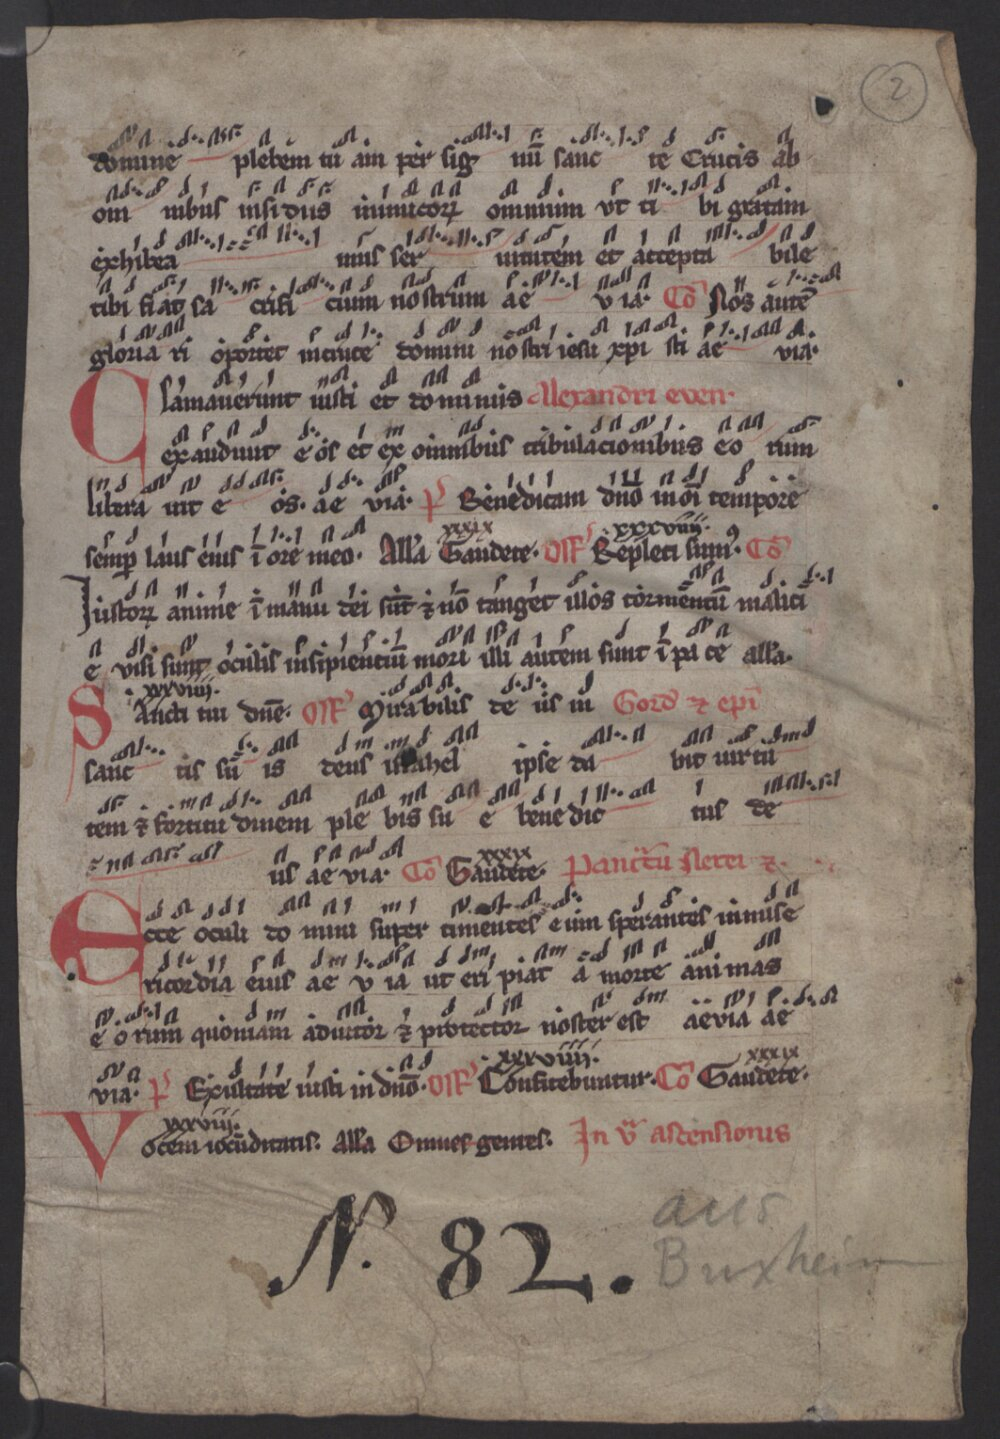 2
domine plebem tu am per sig nū sanc te Crucis ab
om nibus insidiis inimicorꝝ omnium vt ti bi gratam
exhibea mus ser uitutem et accepta bile
tibi fiat sa crifi cium nostrum ae v ia. Cō Nos autē
gloria ri oportet in cruce domini nostri iesu xpi sti ae via.
Clamauerunt iusti et dominus Allexandri even.
exaudiuit e os et ex omnibus tribulacionibus eo rum
libera uit e os. ae via. P̄ Benedicam dn̄o in oī tempore
semp̄ laus eius ī ore meo. All'a xxxix Gaudete. Off' xxxviiii. Repleti sumꝰ. Cō
Iustorꝝ anime ī manu dei sūt ⁊ nō tanget illos tormentū maliti
e visi sunt oculis insipientiū mori illi autem sunt ī pa ce all'a.
xxviiii.
Sancti tui dn̄e. Off' Mirabilis de us in Gord' ⁊ epī
sanc tis sū is deus israhel ipse da bit uirtu
tem ⁊ fortitu dinem ple bis su e bene dic tus de
us ae via. Cō xxxix Gaudete. Pancr̄tii Nerei ⁊.
Ecce oculi do mini super timentes eum sperantes in mise
ricordia eius ae v ia ut eri piat a morte animas
e o rum quoniam adiutor ⁊ protector noster est aevia ae
via. P̄ Exultate iusti in dn̄o. Off' xxxviiii. Confitebuntur. Cō xxxix Gaudete.
xxviii.
Vocem iocūditatis. All'a Omnes gentes. In v̄ ascensionis
N. 82.
aus
Buxheim